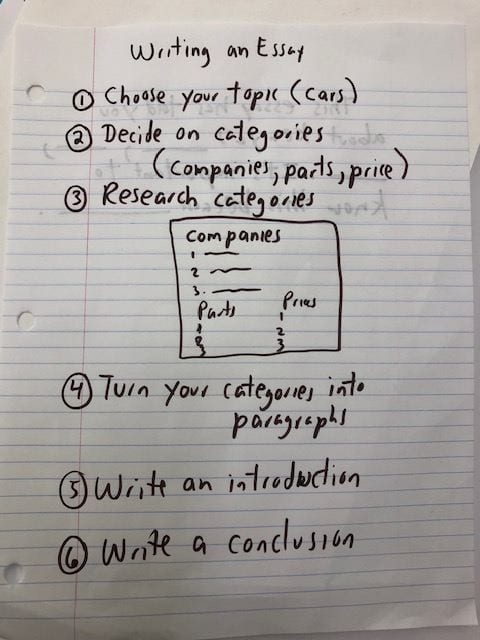 Writing an Essay
① Choose your topic (cars)
② Decide on categories
(companies, parts, price)
③ Research categories
Companies
1
2
3.
Parts Prices
1 1
2 2
3 3
④ Turn your categories into
paragraphs
⑤ Write an introduction
⑥ Write a conclusion